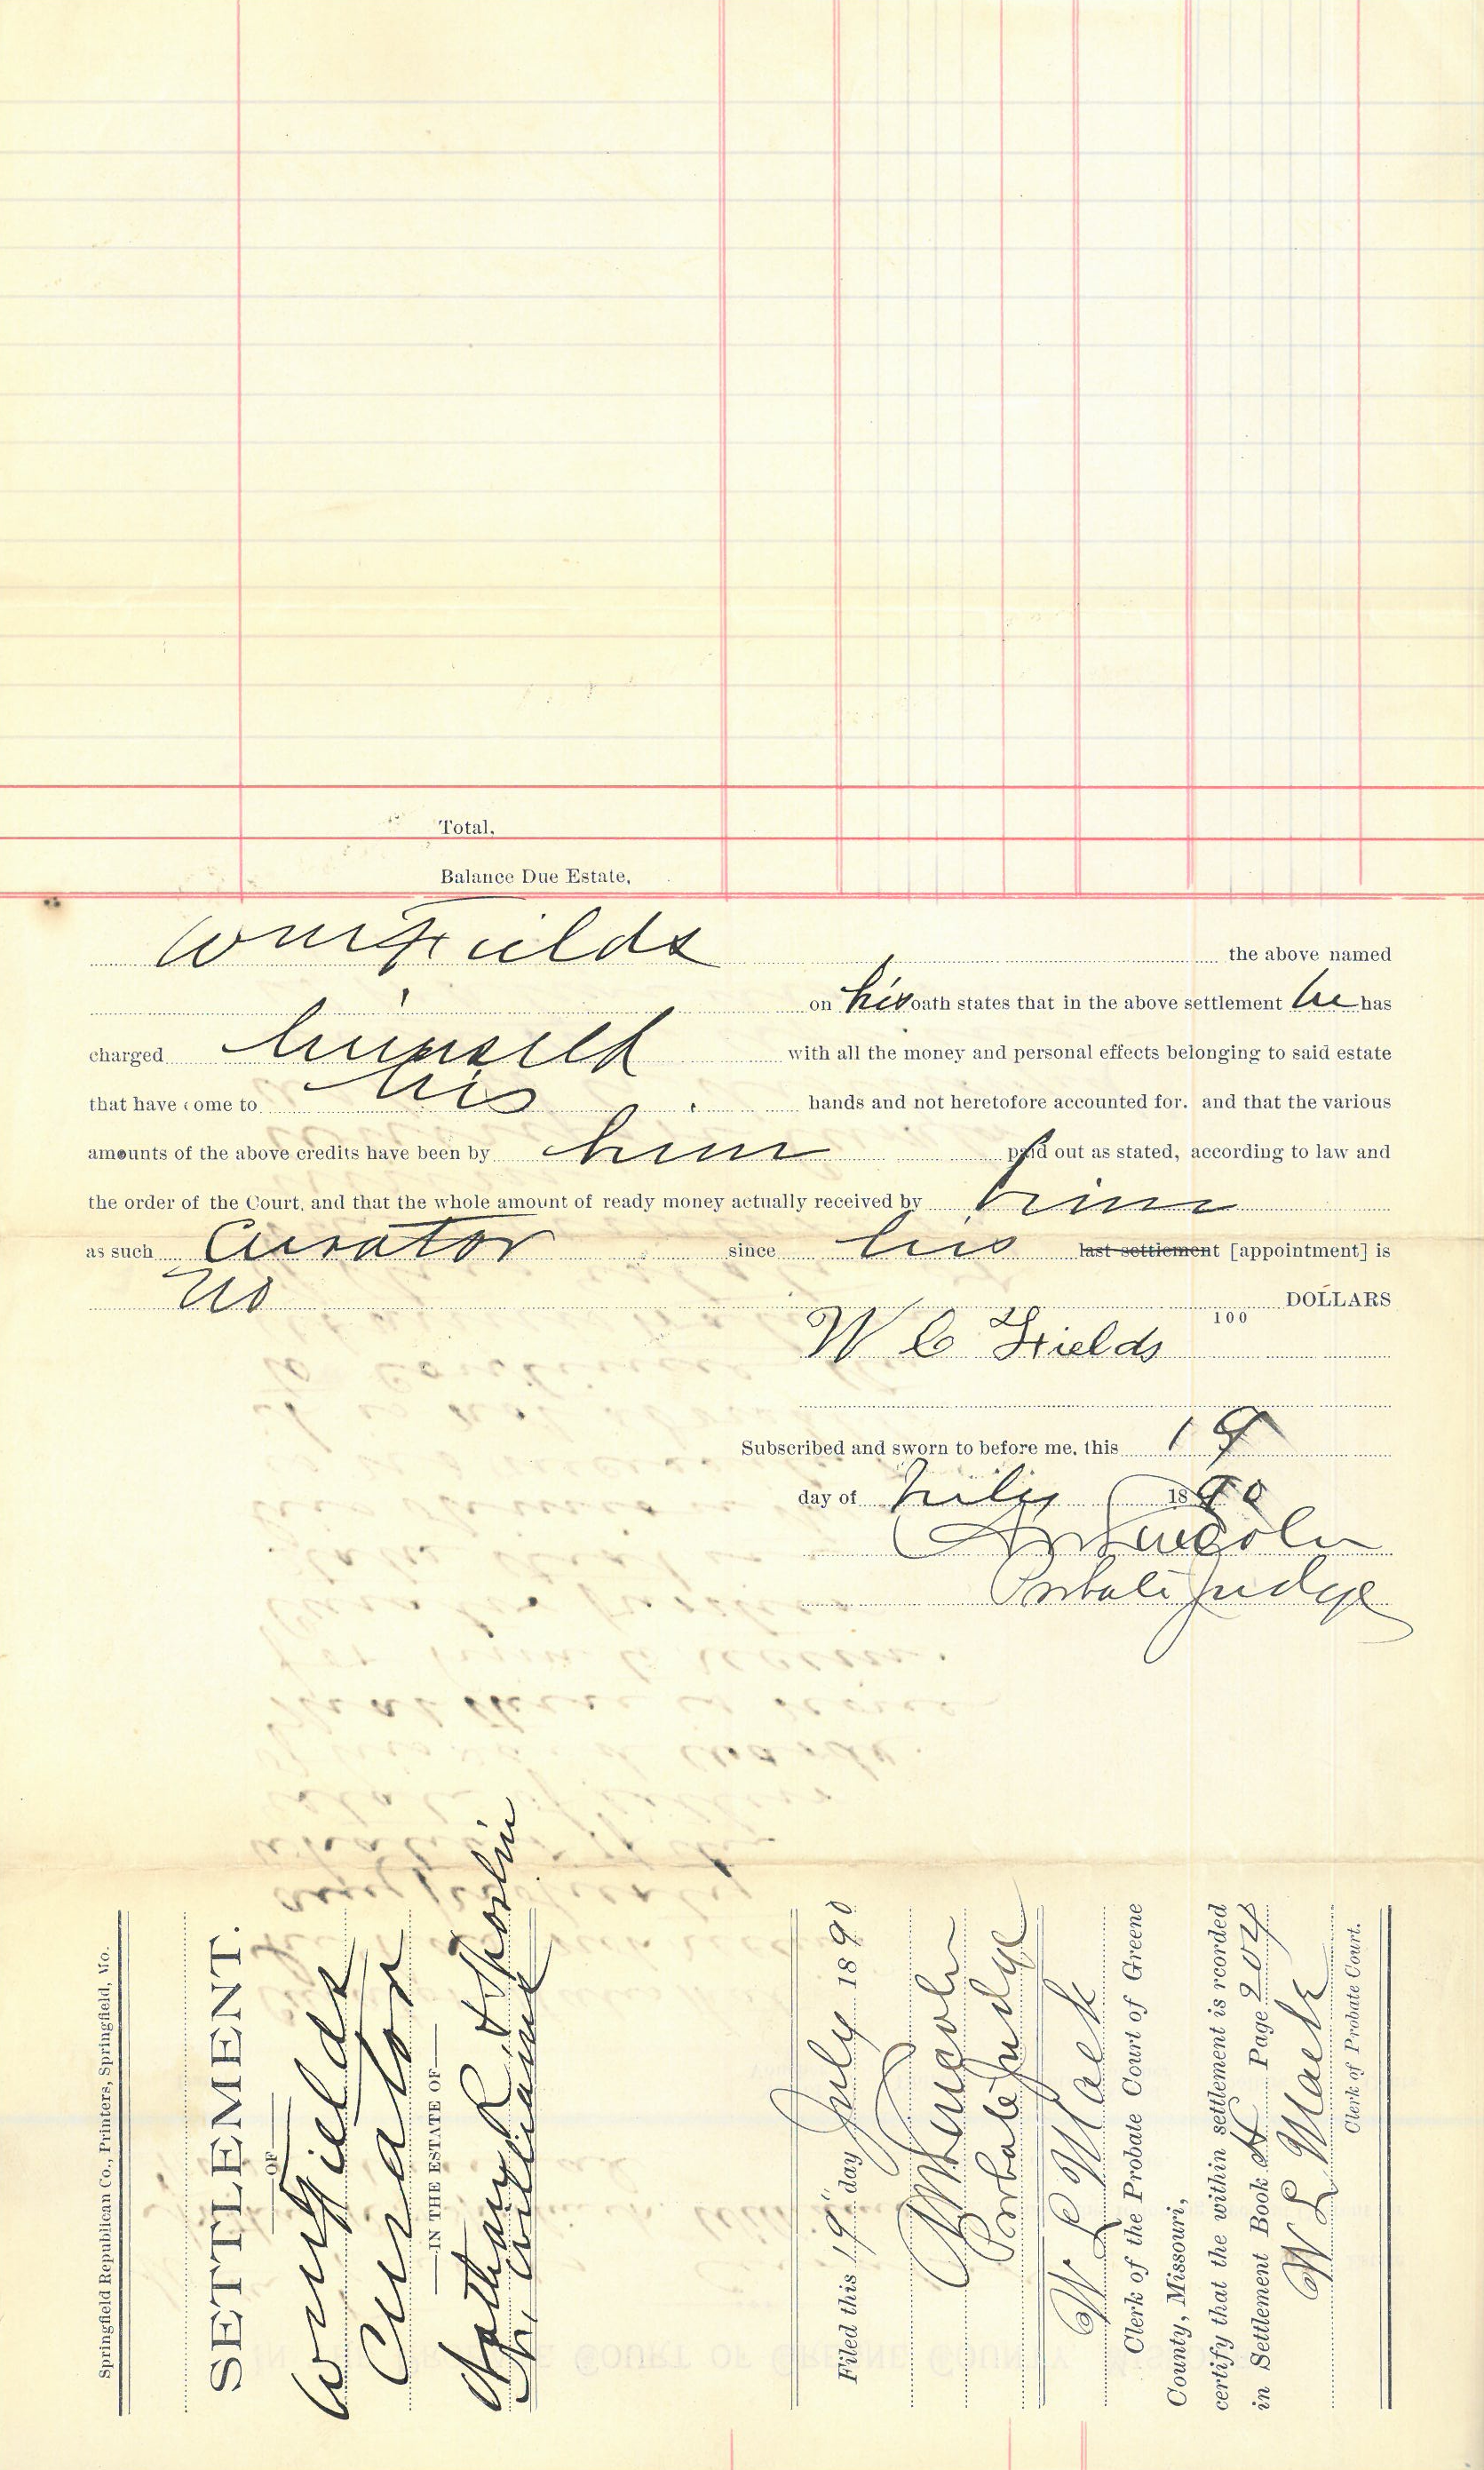 Total,
Balance Due Estate,
Wm Fields the above named
on his oath states that in the above settlement he has
charged himself with all the money and personal effects belonging to said estate
that have come to his hands and not heretofore accounted for. and that the various
amounts of the above credits have been by him paid out as stated, according to law and
the order of the Court, and that the whole amount of ready money actually received by him
as such Curator since his last settlement [appointment] is
no DOLLARS
100
W C Fields
Subscribed and sworn to before me, this 19
day of July 1890
Lincoln
Probate Judge
Springfield Republican Co., Printers, Springfield, Mo.
SETTLEMENT.
OF
Wm Fields
Curator
IN THE ESTATE OF
Nathan R. &
Williams
Filed this 19" day July 1890
Lincoln
Probate Judge
W L Mack
Clerk of the Probate Court of Greene
County, Missouri,
certify that the within settlement is rcorded
in Settlement Book H Page 204
W L Mack
Clerk of Probate Court.